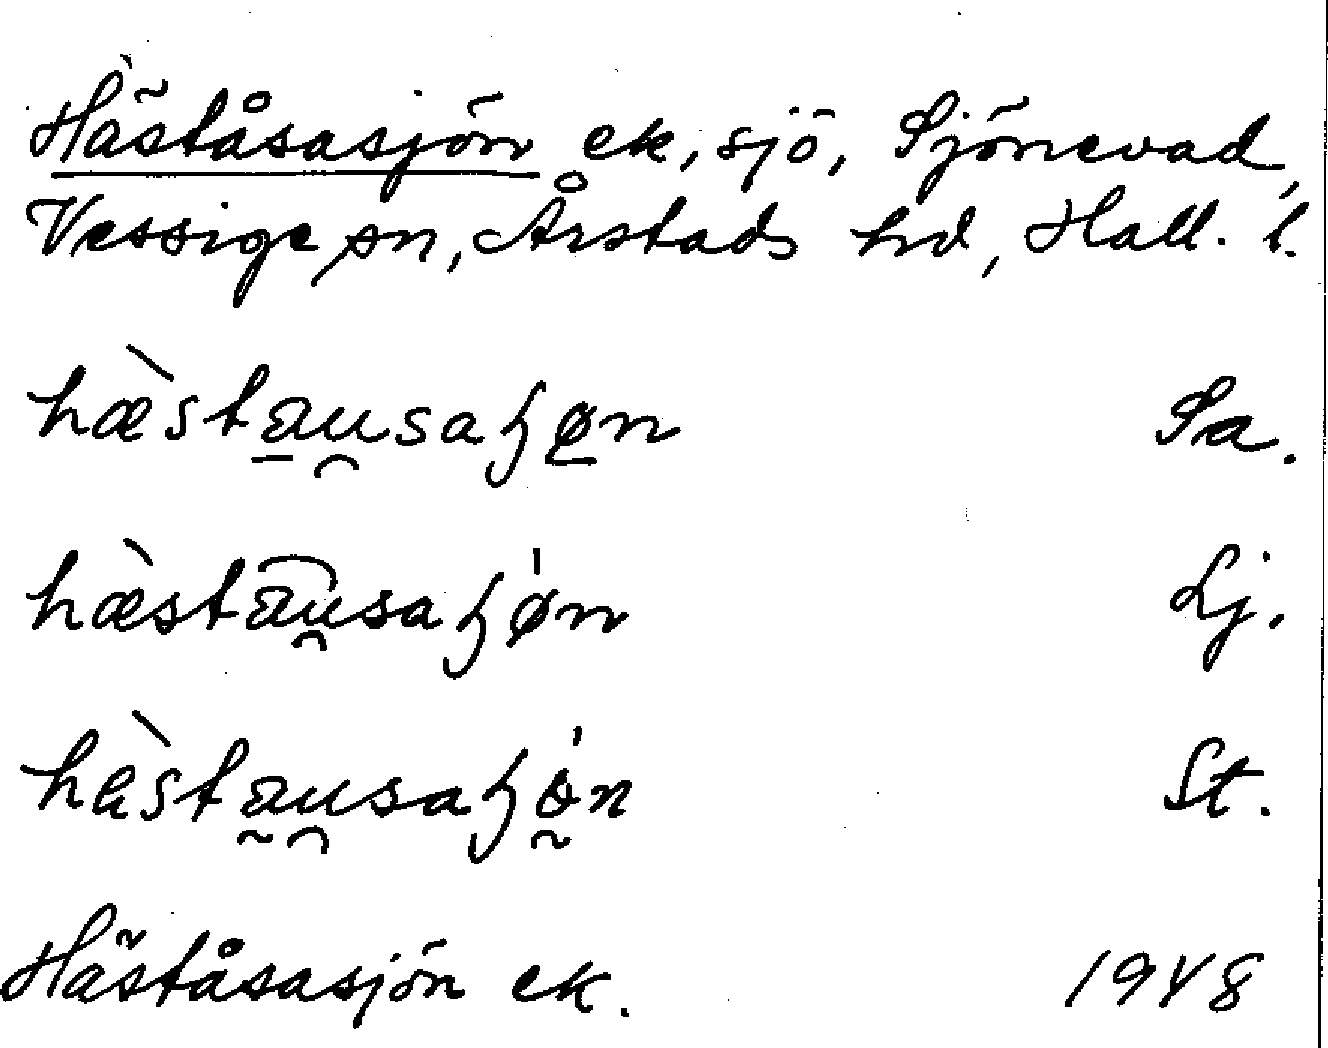 Häståsasjön ek, sjö, Sjönevad,
Vessige sn, Årstads hd, Hall. l.
hæ̀sta̠u̯saɧø̠n Sa.
hæ̀stau̯saɧø̍n Lj.
hàsta̰u̯saɧö̰̍n St.
Häståsasjön ek. 1948